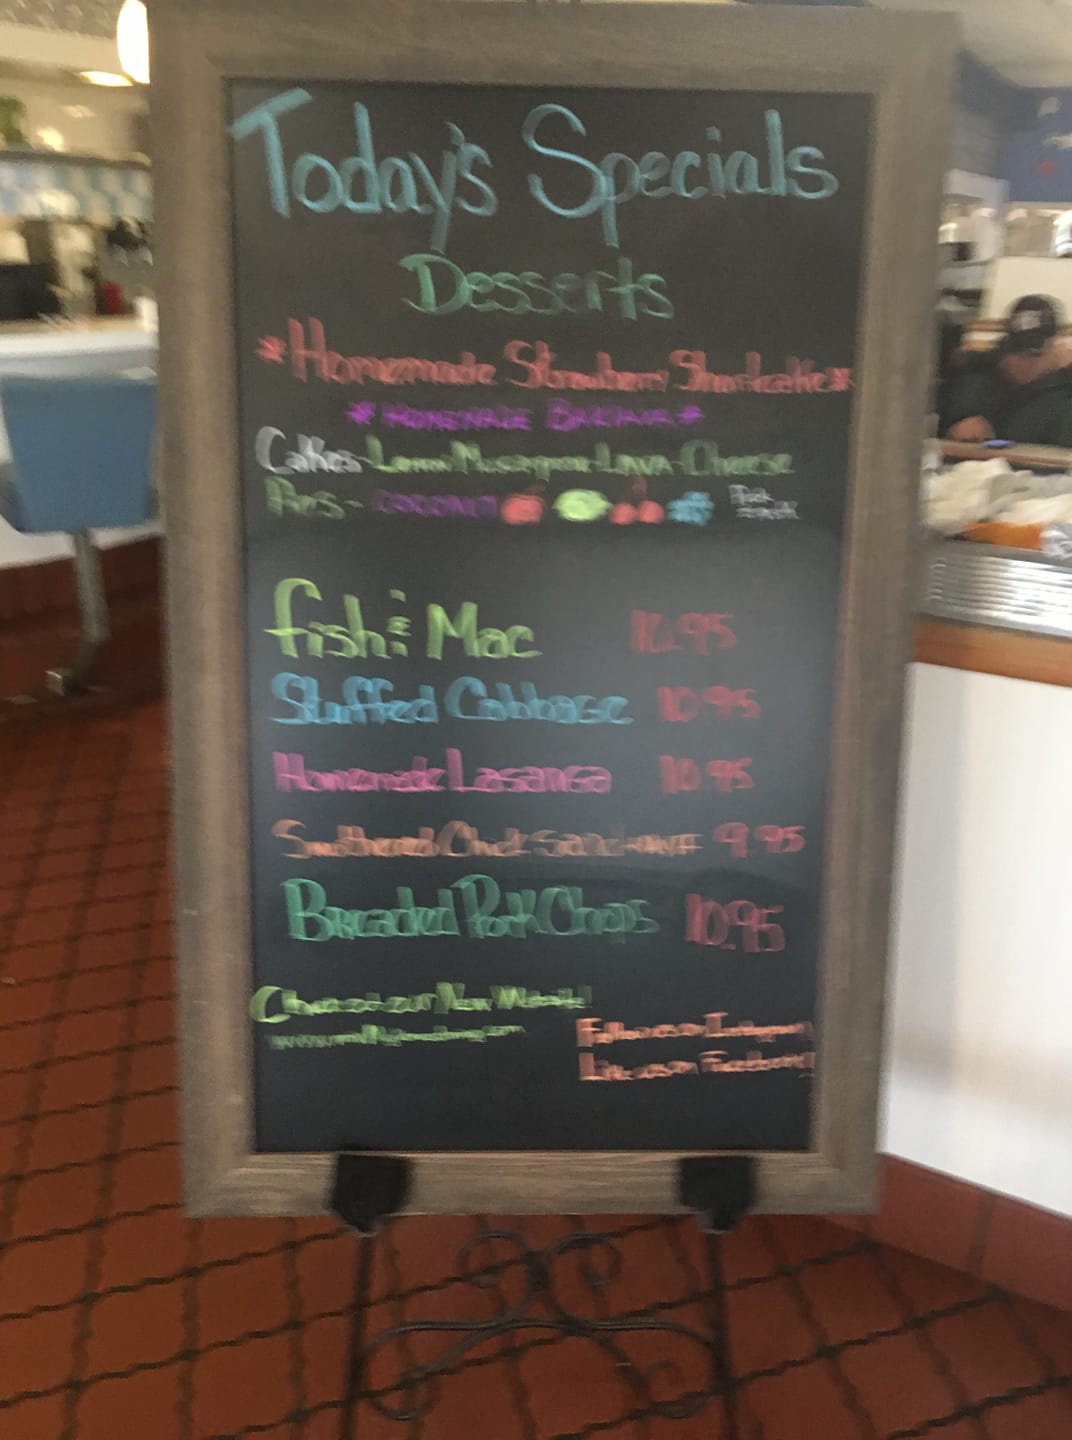 Today's Specials
Desserts
*Homemade Strawberry Shortcake*
*HOMEMADE BAKLAVA*
Cakes-Lemon Mascarpone-LAVA-Cheese
Pies- COCONUT
fish & Mac 10.95
Stuffed Cabbage 10.95
Homemade Lasanga 10.95
Smothered Chick 9.95
Breaded Pork Chops 10.95
Check out our New Website!
Follow us on Instagram
Like us on Facebook